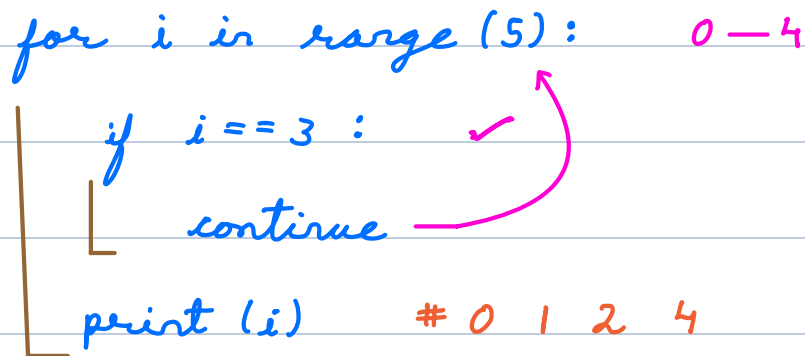 for i in range (5) : 0 — 4
if i == 3 :
continue
print (i) # 0 1 2 4